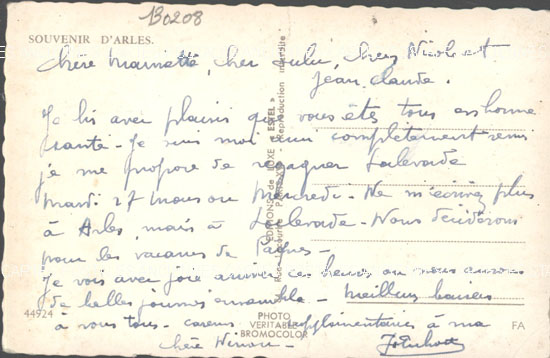 B0208
SOUVENIR D'ARLES.
Chère Mainette, cher Lulu, chers Nicole et
Jean Claude.
Je lis avec plaisir que vous êtes tous en bonne
santé - Je suis moi aussi complètement remis
je me propose de regagner
mardi 27 mars ou mercredi - Ne m'écrivez plus
à Arles mais à - Nous déciderons
pour les vacances de Pâques -
Je vois avec joie arriver ces heures où nous aurons
de belles journées ensemble - meilleurs baisers
à vous tous - supplémentaires à ma
chère
EDITIONS de LUXE « ESTEL »
Reproduction interdite
44924
PHOTO
VERITABLE
BROMOCOLOR
FA